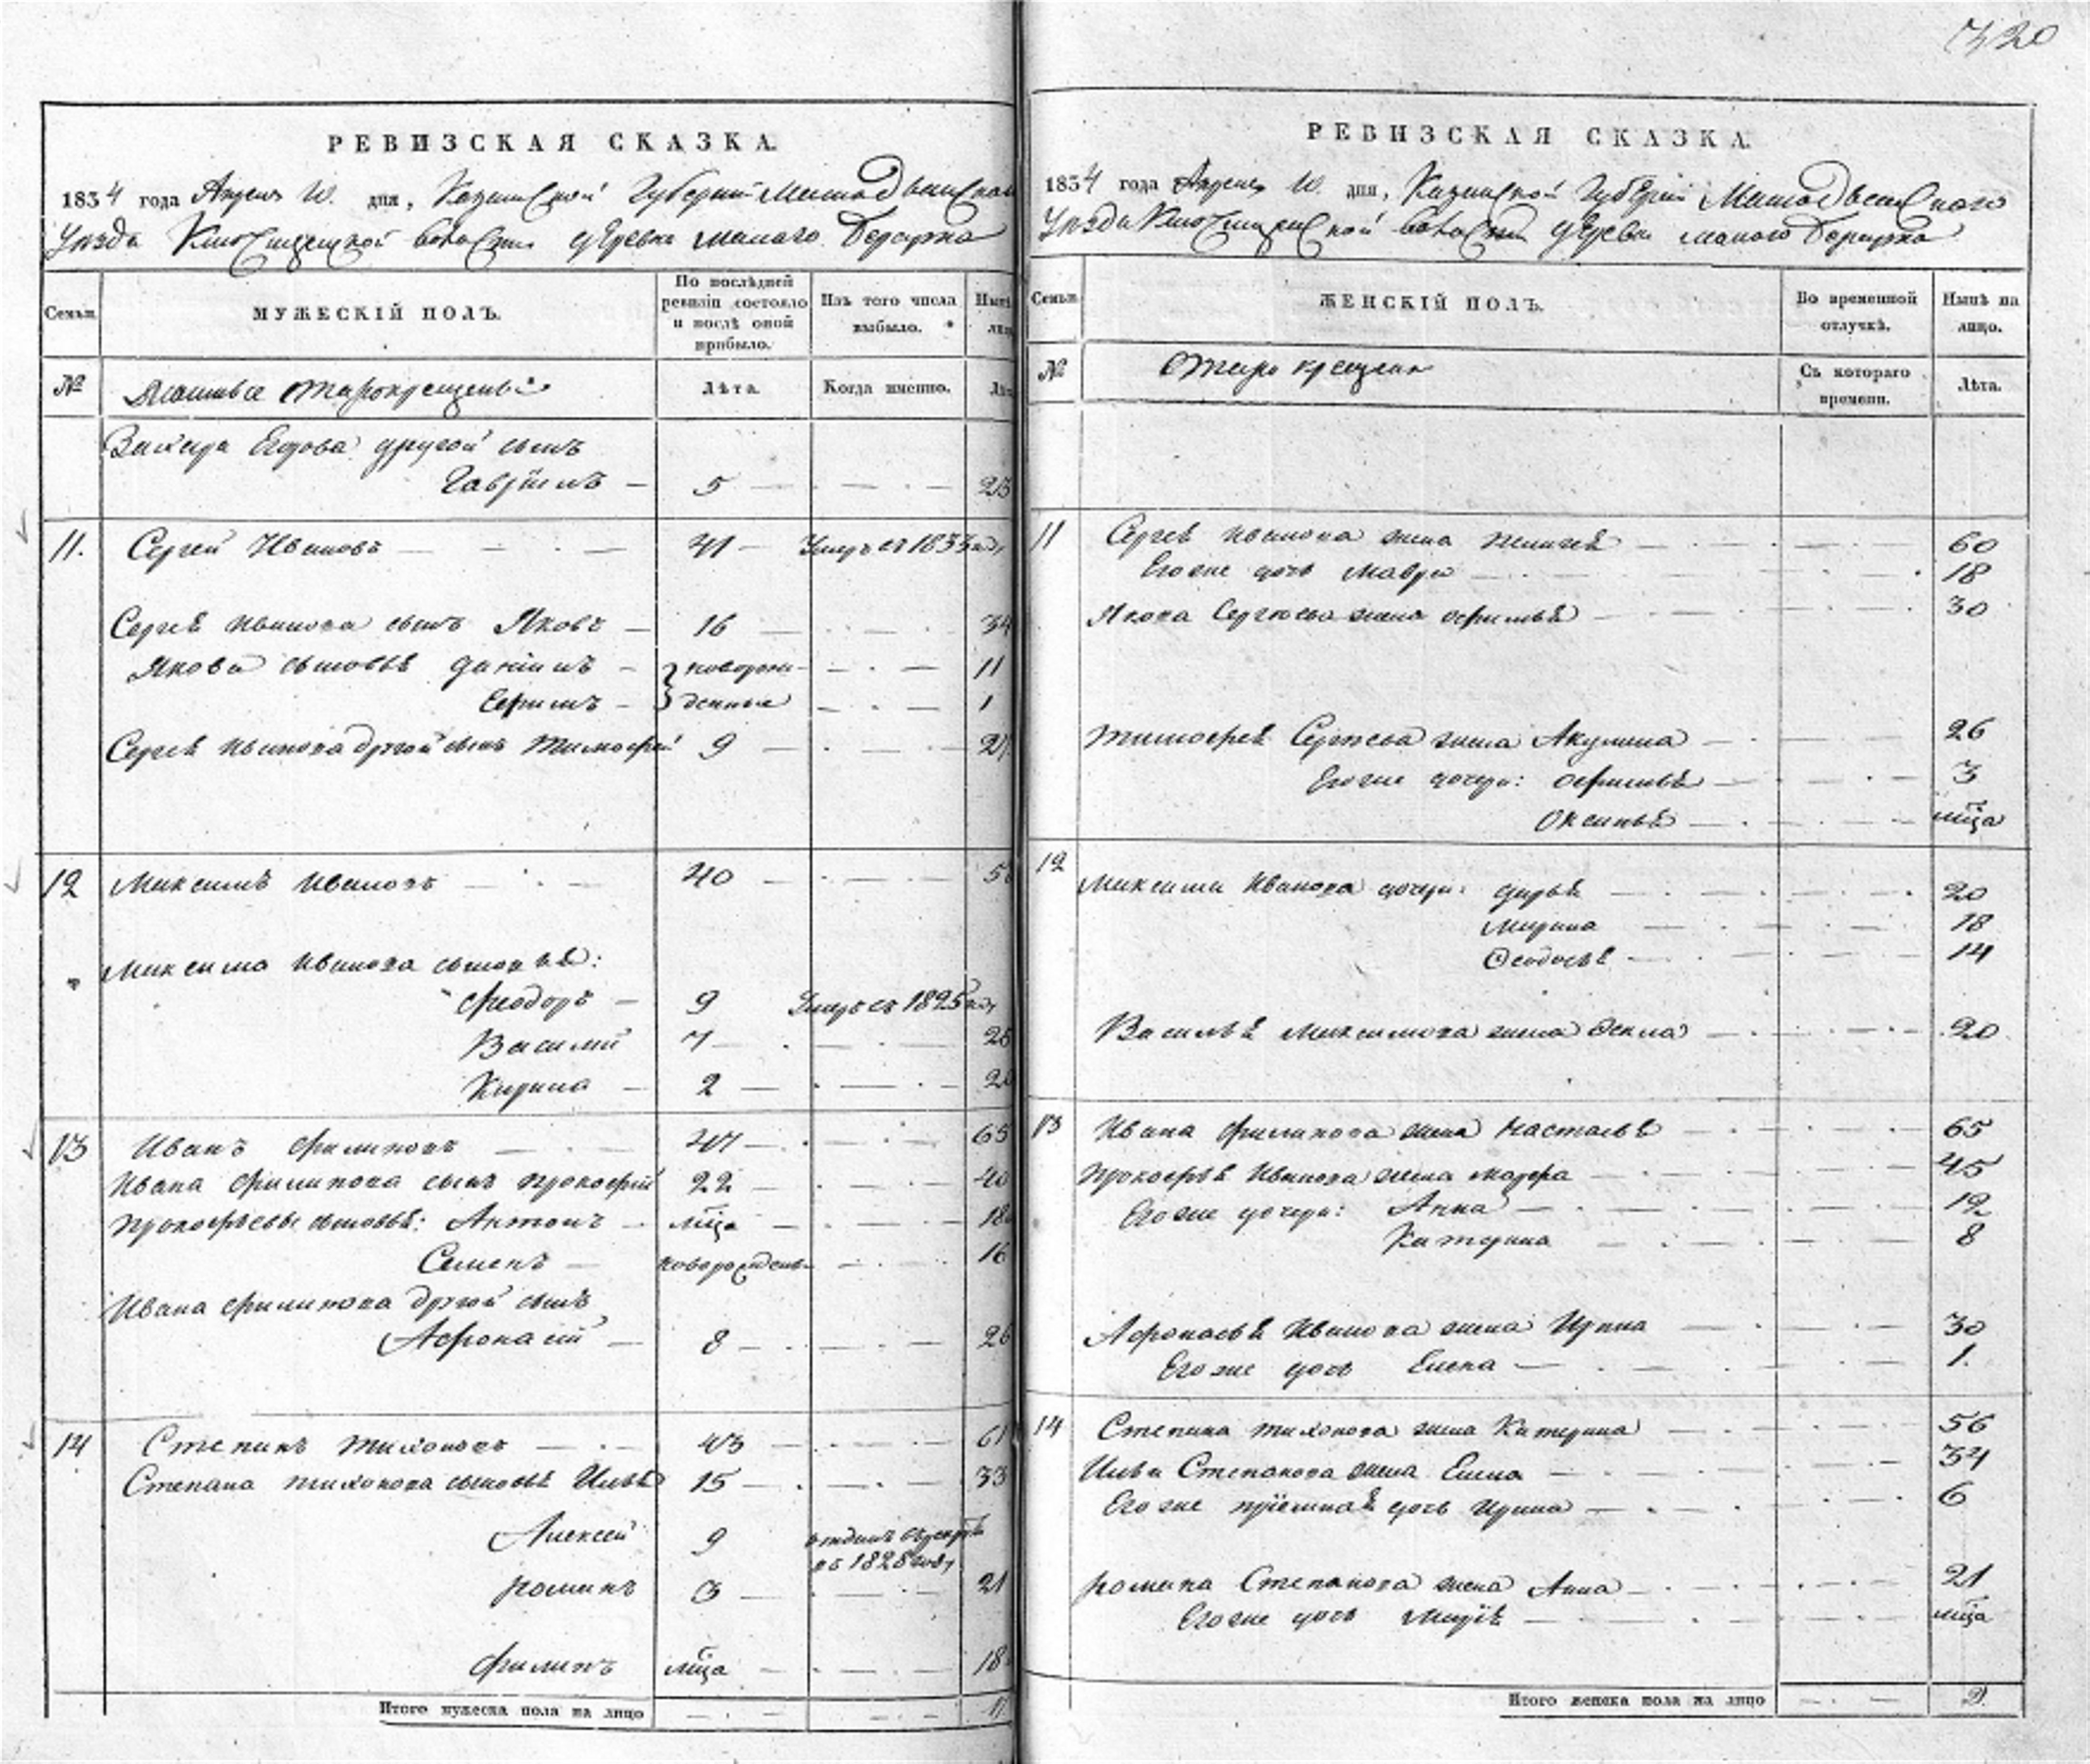 320
РЕВИЗСКАЯ СКАЗКА.
1834 года Апреля 10. дня, Казанской Губернии Мамадышскаго
Уезда Ключищенской волости деревни малаго
СемьиЯ.
МУЖЕСКІЙ ПОЛЪ.
По послѣдней ревизіи состояло и послѣ оной прибыло.
Изъ того числа выбыло.
№
старокрещены
Лѣта.
Когда именно.
Захара другой сынъ
Гаврiилъ — 5 23
11. Сергей Ивановъ 41 Умеръ въ 1833 году
Сергея Иванова сынъ Яковъ — 16 34
Якова сыновья Данiилъ — новорож- 11
Ефимъ — денные 1
Сергея Иванова другой сынъ Тимофей 9 27
12 Максимъ Ивановъ 40
Максима Иванова сыновья:
Феодоръ — 9 Умеръ въ 1825 году
Василий 7 25
Кирила — 2 20
13 Иванъ Филиповъ 47 65
Ивана Филипова сынъ Прокофий 22 40
Прокофьевы сыновья: Антонъ — мца 18
Семенъ — новорожден 16
Ивана Филипова другой сынъ
Афонасий — 8 26
14 Степанъ Тихоновъ 43 61
Степана Тихонова сыновья Илья 15 33
Алексей 9 отданъ въ рекруты
въ 1828 году
Романъ 3 21
Филипъ мца 18
Итого мужеска пола на лицо
РЕВИЗСКАЯ СКАЗКА.
1834 года Апреля 10. дня, Казанской Губернии Мамадышскаго
Уезда Ключищенской волости деревни малаго
Семьи.
ЖЕНСКІЙ ПОЛЪ.
Во временной отлучкѣ.
Нынѣ на лицо.
№
Старокрещены
Съ котораго времени.
Лѣта.
11 Сергея Иванова жена 60
Его же дочь Мавра 18
Якова Сергеева жена Офимья 30
Тимофея Сергеева жена Акулина 26
Его же дочери: Офимья 3
Оксинья мца
12 Максима Иванова дочери: Дарья 20
Марина 18
Ѳеодосья 14
Василья Максимова жена Ѳекла 20
13 Ивана Филипова жена Настасья 65
Прокофья Иванова жена Матрена 45
Его же дочери: Анна 12
Катерина 8
Афонасья Иванова жена Ирина 30
Его же дочь Елена 1.
14 Степана Тихонова жена Катерина 56
Ильи Степанова жена Елена 34
Его же прiемная дочь Ирина 6
Романа Степанова жена Анна 21
Его же дочь Марiя мца
Итого женска пола на лицо